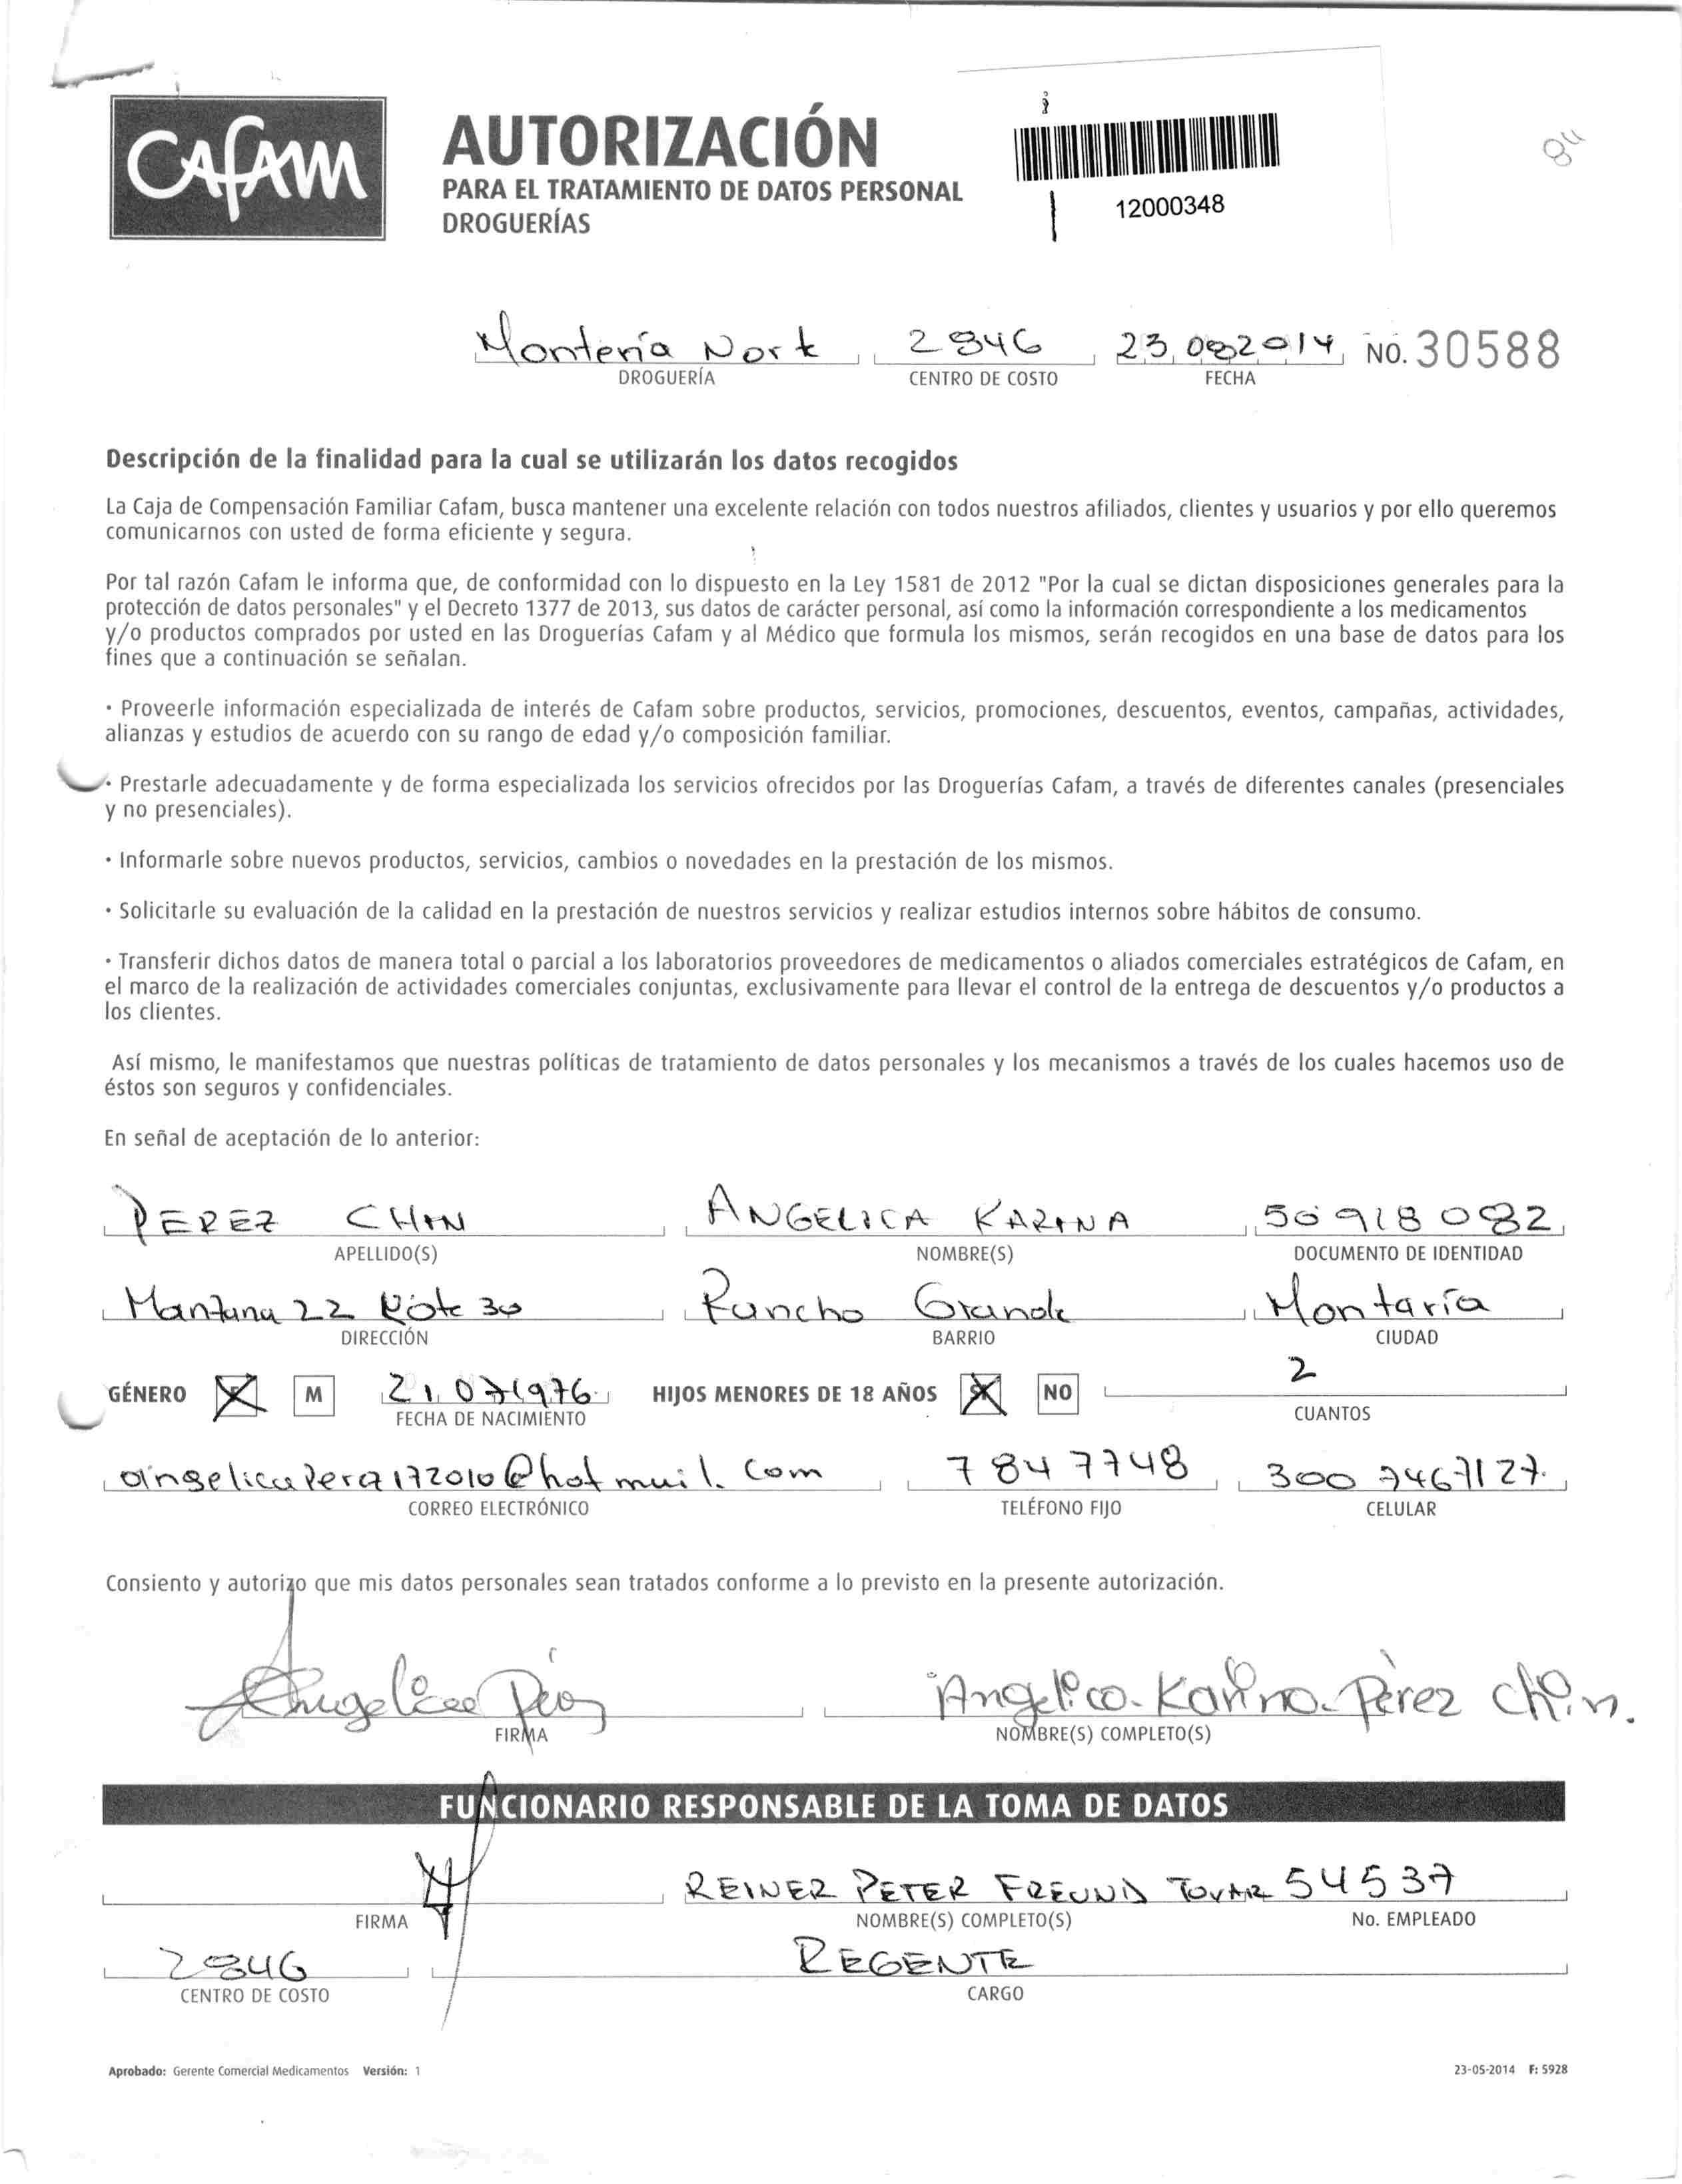 CAFAM
AUTORIZACIÓN
PARA EL TRATAMIENTO DE DATOS PERSONAL
DROGUERÍAS
12000348
84
Montería Nort 2846 23 08 2014 NO. 30588
DROGUERÍA CENTRO DE COSTO FECHA
Descripción de la finalidad para la cual se utilizarán los datos recogidos
La Caja de Compensación Familiar Cafam, busca mantener una excelente relación con todos nuestros afiliados, clientes y usuarios y por ello queremos
comunicarnos con usted de forma eficiente y segura.
Por tal razón Cafam le informa que, de conformidad con lo dispuesto en la Ley 1581 de 2012 "Por la cual se dictan disposiciones generales para la
protección de datos personales" y el Decreto 1377 de 2013, sus datos de carácter personal, así como la información correspondiente a los medicamentos
y/o productos comprados por usted en las Droguerías Cafam y al Médico que formula los mismos, serán recogidos en una base de datos para los
fines que a continuación se señalan.
· Proveerle información especializada de interés de Cafam sobre productos, servicios, promociones, descuentos, eventos, campañas, actividades,
alianzas y estudios de acuerdo con su rango de edad y/o composición familiar.
· Prestarle adecuadamente y de forma especializada los servicios ofrecidos por las Droguerías Cafam, a través de diferentes canales (presenciales
y no presenciales).
· Informarle sobre nuevos productos, servicios, cambios o novedades en la prestación de los mismos.
· Solicitarle su evaluación de la calidad en la prestación de nuestros servicios y realizar estudios internos sobre hábitos de consumo.
· Transferir dichos datos de manera total o parcial a los laboratorios proveedores de medicamentos o aliados comerciales estratégicos de Cafam, en
el marco de la realización de actividades comerciales conjuntas, exclusivamente para llevar el control de la entrega de descuentos y/o productos a
los clientes.
Así mismo, le manifestamos que nuestras políticas de tratamiento de datos personales y los mecanismos a través de los cuales hacemos uso de
éstos son seguros y confidenciales.
En señal de aceptación de lo anterior:
PEREZ CHIN ANGELICA KARINA 50918082
APELLIDO(S) NOMBRE(S) DOCUMENTO DE IDENTIDAD
Manzana 22 Lote 30 Rancho Grande Montaría
DIRECCIÓN BARRIO CIUDAD
GÉNERO M 21 07 1976 HIJOS MENORES DE 18 AÑOS NO 2
FECHA DE NACIMIENTO CUANTOS
angelicaperez172010@hotmail.com 7847748 300 7467127
CORREO ELECTRÓNICO TELÉFONO FIJO CELULAR
Consiento y autorizo que mis datos personales sean tratados conforme a lo previsto en la presente autorización.
Angelica Angelica Karina Pérez Chin.
FIRMA NOMBRE(S) COMPLETO(S)
FUNCIONARIO RESPONSABLE DE LA TOMA DE DATOS
REINER PETER FREUND TOVAR 54537
FIRMA NOMBRE(S) COMPLETO(S) No. EMPLEADO
2846 REGENTE
CENTRO DE COSTO CARGO
Aprobado: Gerente Comercial Medicamentos Versión: 1 23-05-2014 F: 5928